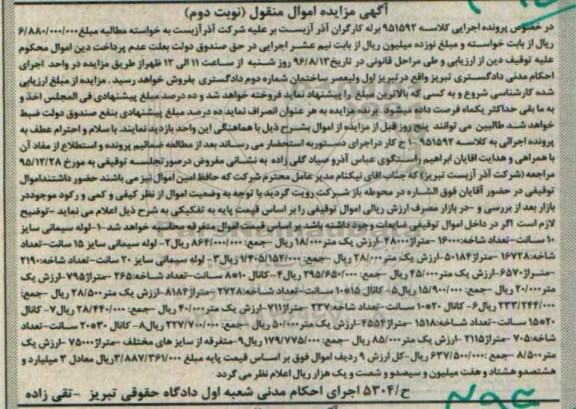 آگهی مزایده اموال منقول (نوبت دوم)
در خصوص پرونده اجرایی کلاسه ۹۵۱۵۹۲ برله کارگران آذر آزیست بر علیه شرکت آذر آزیست به خواسته مطالبه مبلغ ۶/۸۸۰/۰۰۰/۰۰۰
ریال از بابت خواسته و مبلغ نوزده میلیون ریال از بابت نیم عشر اجرایی در حق صندوق دولت بعلت عدم پرداخت دین اموال محکوم
علیه توقیف دین از ارزیابی و طی مراحل قانونی در تاریخ ۹۶/۸/۱۳ روز شنبه از ساعت ۱۱ الی ۱۲ ظهر از طریق مزایده در واحد اجرای
احکام مدنی دادگستری تبریز واقع در تبریز اول ولیعصر ساختمان شماره دوم دادگستری بفروش خواهد رسید. مزایده از مبلغ ارزیابی
شده کارشناسی شروع و به کسی که بالاترین مبلغ را پیشنهاد نماید فروخته خواهد شد و ده درصد مبلغ پیشنهادی فی المجلس اخذ و
به ما بقی حداکثر یکماه فرصت داده میشود برنده مزایده به هر عنوان انصراف نماید ده درصد مبلغ پیشنهادی بنفع صندوق دولت ضبط
خواهد شد طالبین می توانند پنج روز قبل از مزایده از اموال بشرح ذیل با هماهنگی این واحد بازدید نمایند. با سلام و احترام عطف به
پرونده اجرائی به کلاسه ۹۵۱۵۹۲ ا ج کار در اجرای دستور به استحضار می رساند بعد از مطالعه ضمائم پرونده و استطلاع از مفاد آن
با همراهی و هدایت آقایان ابراهیم راستگوی عباس آذر و صیاد گلی زاده به نشانی مفروض در صورتجلسه توقیفی به مورخ ۹۵/۱۲/۲۸
مراجعه (شرکت آذر آزیست تبریز) که جناب آقای نیکنام مدیر عامل محترم شرکت که حافظ امین اموال نیز می باشند حضور داشتند اموال
توقیفی در حضور آقایان فوق الشاره در محوطه باز شرکت رویت گردید با توجه به وضعیت اموال از نظر کیفی و کمی و رکود موجود در
بازار بعد از بررسی و در بازار مصرف ارزش ریالی اموال توقیفی را بر اساس قیمت پایه به تفکیکی به شرح ذیل اعلام می نماید - توضیح
لازم است اگر در داخل اموال توقیفی ضایعات وجود داشته باشد بر اساس قیمت اموال متفرقه محاسبه خواهد شد ۱- لوله سیمانی سایز
۱۰ سانت - تعداد شاخه: ۱۶۰۰۰ - متراژ ۴۸۰۰۰ - ارزش یک متر ۱۸/۰۰۰ ریال - جمع: ۸۶۴/۰۰۰/۰۰۰ ریال ۲- لوله سیمانی سایز ۱۵ سانت - تعداد
شاخه: ۱۶۷۲۸ - متراژ ۵۰۱۸۴ - ارزش یک متر ۲۸/۰۰۰ ریال - جمع: ۱/۴۰۵/۱۵۲/۰۰۰ ریال ۳- لوله سیمانی سایز ۲۰ سانت - تعداد شاخه: ۲۱۹۰
- متراژ ۶۵۷۰ - ارزش یک متر ۴۵/۰۰۰ ریال - جمع: ۲۹۵/۶۵۰/۰۰۰ ریال ۴- کانال ۱۰*۸ سانت - تعداد شاخه: ۲۶۵ - متراژ ۷۹۵ - ارزش یک
متر ۲۰/۰۰۰ ریال - جمع: ۱۵/۹۰۰/۰۰۰ ریال ۵- کانال ۱۵*۱۰ سانت - تعداد شاخه: ۲۷۲۸ - متراژ ۸۱۸۴ - ارزش یک متر ۲۸/۵۰۰ ریال - جمع:
۲۳۳/۲۴۴/۰۰۰ ریال ۶- کانال ۲۰*۱۰ سانت - تعداد شاخه: ۲۳۷ - متراژ ۷۱۱ - ارزش یک متر ۴۰/۰۰۰ ریال - جمع: ۲۸/۴۴۰/۰۰۰ ریال ۷- کانال
۲۰*۱۵ سانت - تعداد شاخه: ۱۵۱۸ - متراژ ۴۵۵۴ - ارزش یک متر ۵۰/۰۰۰ ریال - جمع: ۲۲۷/۷۰۰/۰۰۰ ریال ۸- کانال ۳۰*۲۰ سانت - تعداد
شاخه: ۷۰۵ - متراژ ۲۱۱۵ - ارزش یک متر ۸۵/۰۰۰ ریال - جمع: ۱۷۹/۷۷۵/۰۰۰ ریال ۹- متفرقه از سایز های مختلف - متراژ ۷۵۰۰۰ - ارزش یک
متر ۸/۵۰۰ - جمع: ۶۳۷/۵۰۰/۰۰۰ ریال - کل ارزش ۹ ردیف اموال فوق بر اساس قیمت پایه مبلغ ۳/۸۸۷/۳۶۱/۰۰۰ ریال معادل ۳ میلیارد و
هشتصد و هشتاد و هفت میلیون و سیصد و شصت و یک هزار ریال اعلام نظر می گردد
ح/۵۳۰۴ اجرای احکام مدنی شعبه اول دادگاه حقوقی تبریز - تقی زاده